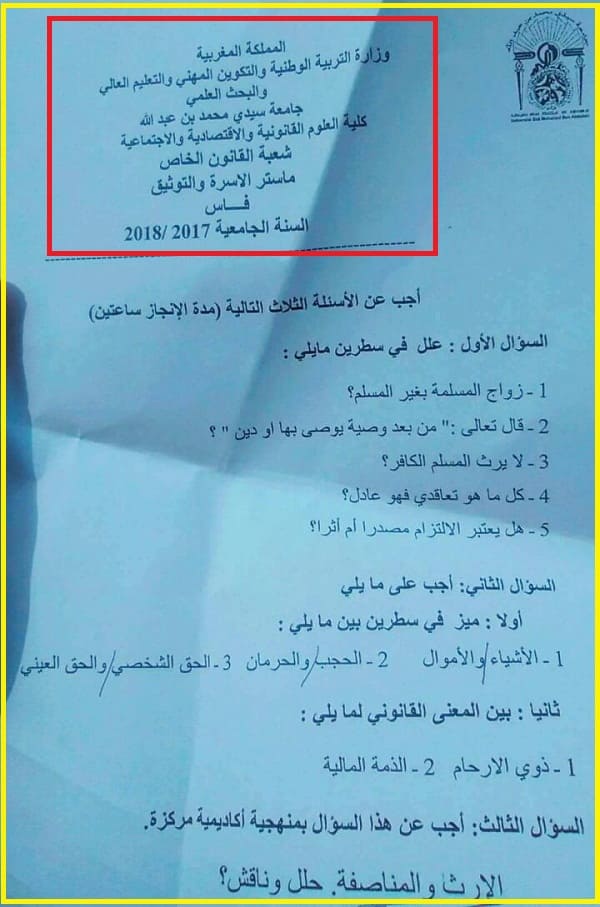 المملكة المغربية
وزارة التربية الوطنية والتكوين المهني والتعليم العالي
والبحث العلمي
جامعة سيدي محمد بن عبد الله
كلية العلوم القانونية والاقتصادية والاجتماعية
شعبة القانون الخاص
ماستر الاسرة والتوثيق
فـــاس
السنة الجامعية 2017 /2018
أجب عن الأسئلة الثلاث التالية (مدة الإنجاز ساعتين)
السؤال الأول : علل في سطرين مايلي :
1 - زواج المسلمة بغير المسلم؟
2 - قال تعالى :" من بعد وصية يوصى بها او دين " ؟
3 - لا يرث المسلم الكافر؟
4 - كل ما هو تعاقدي فهو عادل؟
5 - هل يعتبر الالتزام مصدرا أم أثرا؟
السؤال الثاني: أجب على ما يلي
أولا : ميز في سطرين بين ما يلي :
1 - الأشياء/والأموال 2 - الحجب/والحرمان 3 - الحق الشخصي/والحق العيني
ثانيا : بين المعنى القانوني لما يلي :
1 - ذوي الارحام 2 - الذمة المالية
السؤال الثالث: أجب عن هذا السؤال بمنهجية أكاديمية مركزة.
الإرث والمناصفة. حلل وناقش؟